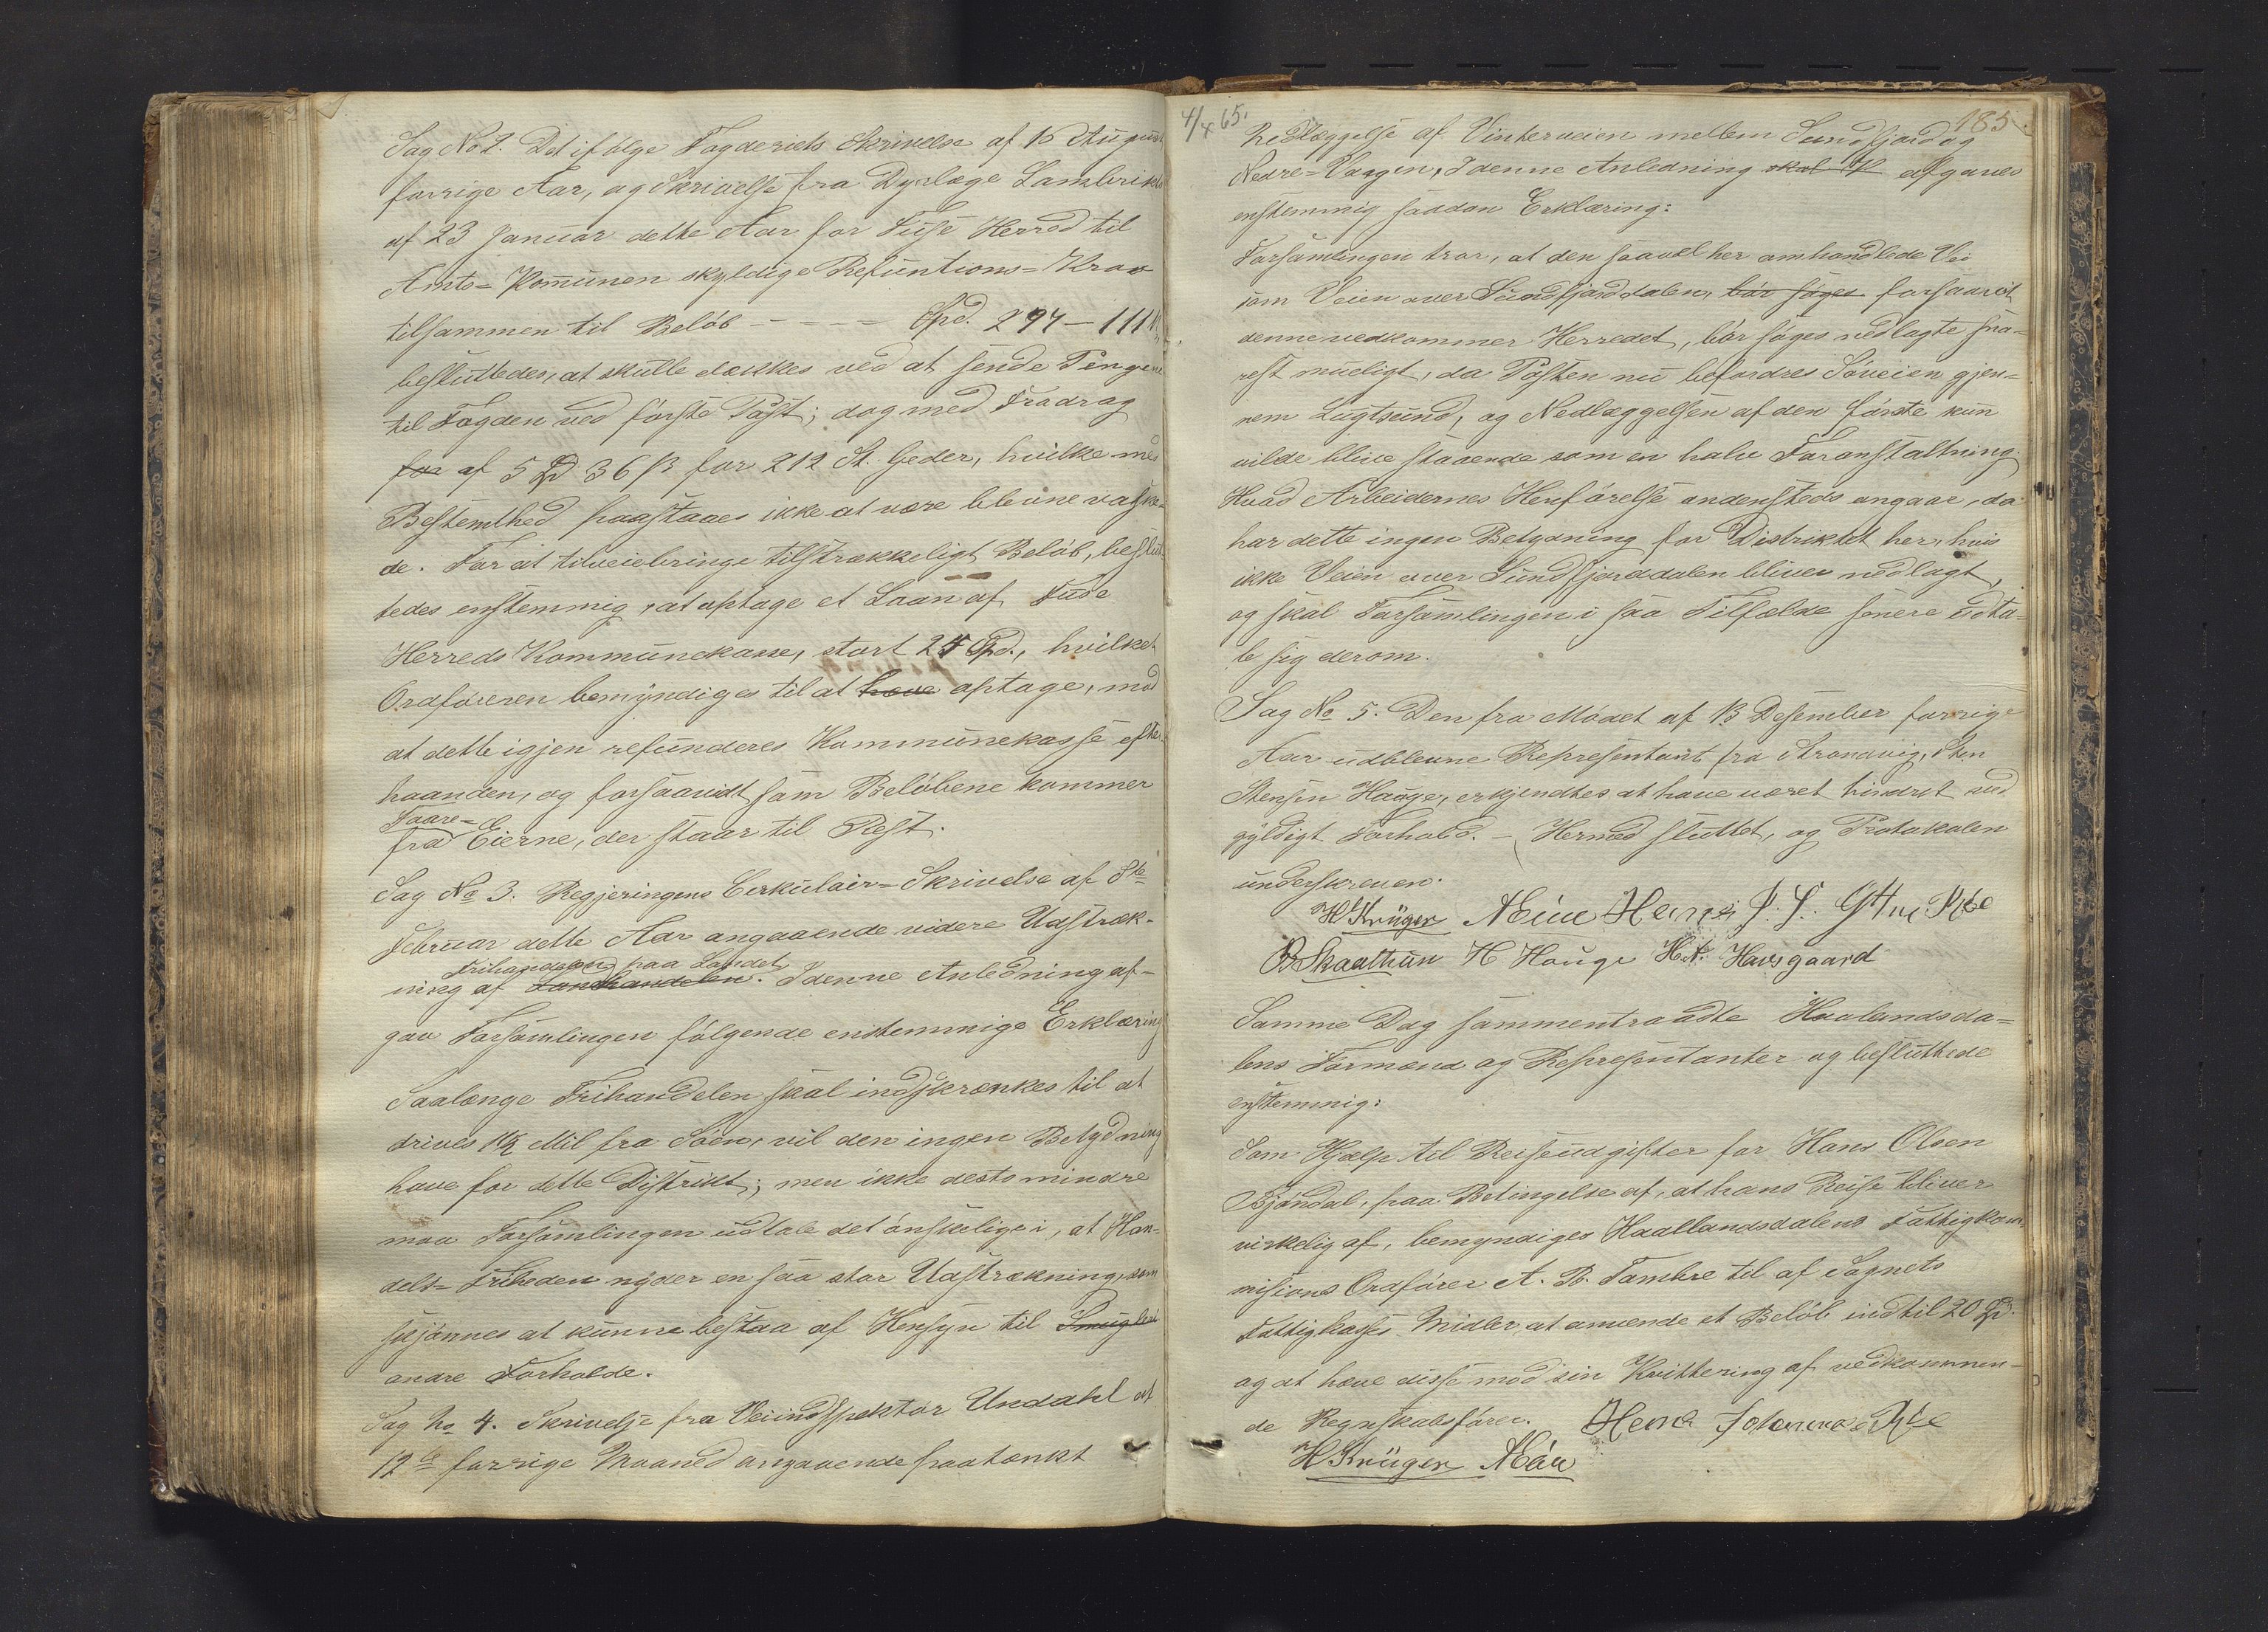 Sag No 2. Det ifølge Fogderiets Skrivelse af 16 August
forrige Aar, og Skrivelse fra Dyrlæge
af 23 Januar dette Aar for Fuse Herred til
Amts-Komunen skyldige Refuntions-Krav
tilsammen til Beløb - - - - - Spd. 294 - 111
besluttedes, at skulle dækkes ved at sende Pengene
til Fogden ved første Post; dog med Fradrag
for af 5 Spd 36 ß for 212 St. Geder, hvilke med
Bestemthed paastaaes ikke at være blevne vaske-
de. For at tilveiebringe tilstrækkeligt Beløb, beslut
tedes enstemmig, at optage et Laan af Fuse
Herreds Kommunekasse, stort 25 Spd., hvilket
Ordføreren bemyndiges til at hæve optage, mod
at dette igjen refunderes Kommunekasse efter
haanden, og forsaavidt som Beløbene kommer
fra Faare-Eierne, der staar til Rest.
Sag No 3. Regjeringens Cirkulair-Skrivelse af
Februar dette Aar angaaende videre Udstræk-
ning af Landhandelen Frihandelen paa Landet. I denne Anledning af-
gav Forsamlingen følgende enstemmige Erklæring
Saalænge Frihandelen skal indskrænkes til at
drives 1½ Mil fra Søen, vil den ingen Betydning
have for dette Distrikt; men ikke desto mindre
maa Forsamlingen udtale det ønskelige i, at Han-
dels-Friheden nyder en saa stor Udstrækning, som
skjønnes at kunne bestaa af Hensyn til Smugleri
andre Forholde.
Sag No 4. Skrivelse fra Veiindspektør Undahl af
12te forrige Maaned angaaende paatænkt
4/4 65. 185.
Nedlæggelse af Vinterveien mellem Sundfjord og
Nedre-Vaagen, I denne Anledning skal afgaves
enstemmig saadan Erklæring:
Forsamlingen tror, at den saavel her omhandlede Vei
som Veien over Sundfjorddalen, bør søges forsaavidt
denne vedkommer Herredet, bør søges nedlagte sna-
rest mueligt, da Posten nu befordres Søveien gjen-
nem Lugtsund, og Nedlæggelsen af den første kun
vilde blive staaende som en halv Foranstaltning.
Hvad Arbeidernes Henførelse andensteds angaar, da
har dette ingen Betydning for Distriktet her, hvis
ikke Veien over Sundfjorddalen bliver nedlagt,
og skal Forsamlingen i saa Tilfælde senere udta-
le sig derom.
Sag No 5. Den fra Mødet af 13 Desember forrige
Aar udblevne Representant fra Strandvig, Sten
Stensen Hauge, erkjendtes at have været hindret ved
gyldigt Forhold. - Hermed sluttet, og Protokolen
underskreven.
H Krüger
B Skaathun H Hauge H. N. Havsgaard
Samme Dag sammentraadte Haalandsda-
lens Formænd og Representanter og besluttede
enstemmig:
Som Hjælp til Reiseudgifter for Hans Olsen
Bjøndal, paa Betingelse af, at hans Reise bliver
virkelig af, bemyndiges Haallandsdalens Fattigkom-
misions Ordfører A. B. Tombre til af Sognets
Fattigkasses Midler at anvende et Beløb indtil 20 Spd.
og at hæve disse mod sin Kvittering af vedkommen-
de Regnskabsfører.
H Krüger